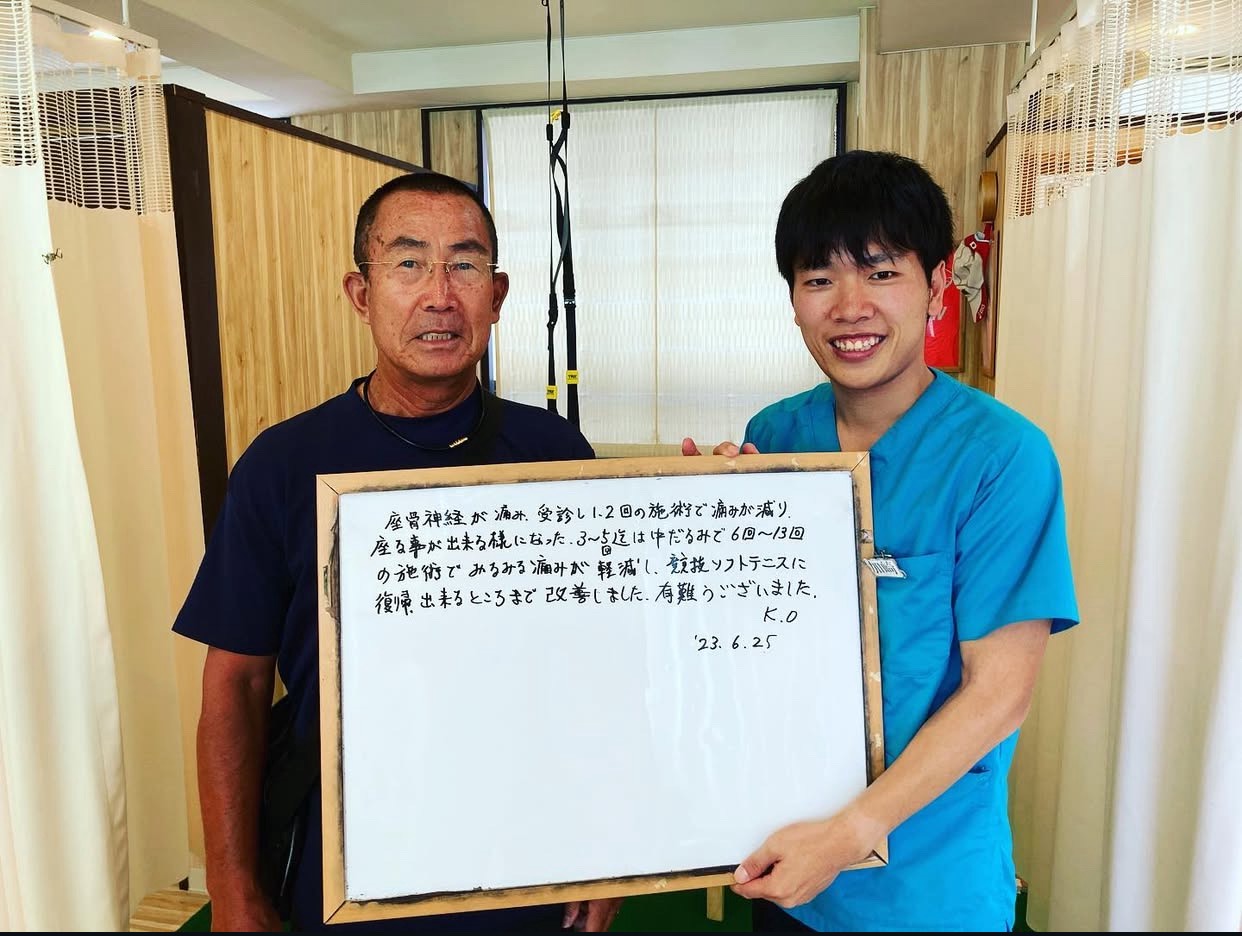 座骨神経が痛み、受診し1.2回の施術で痛みが減り、
座る事が出来る様になった。3〜5回迄は中だるみで6回〜13回
の施術でみるみる痛みが軽減し、競技ソフトテニスに
復帰出来るところまで改善しました。有難うございました。
K.O
'23.6.25